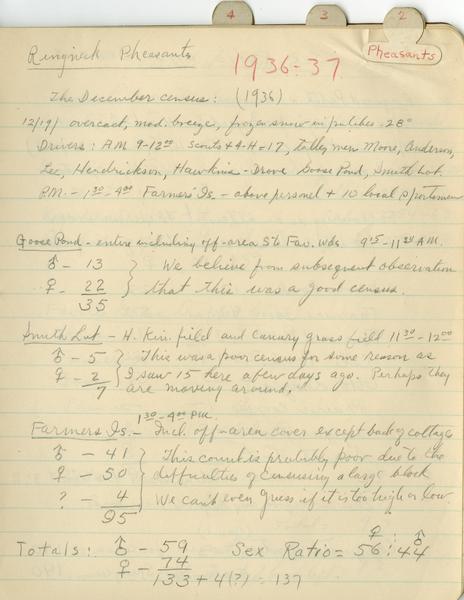 4 3 2
Ringneck Pheasants
Pheasants
1936-37
The December census: (1936)
12/19/ overcast, mod. breeze, frozen snow in patches. 28°
Drivers: A.M. 9-12⁰⁰ Scouts + 4-H = 17, tally men Moore, Anderson,
Lee, Hendrickson, Hawkins - Drove Goose Pond, Smith Lot.
P.M. - 1³⁰ - 4⁰⁰ Farmers' Is. - above personel + 10 local sportsmen
Goose Pond - entire including off-area S to Fav. Wds. 9¹⁵ - 11³⁰ A.M.
♂ - 13 } We believe from subsequent observation
♀ - 22 } that this was a good census.
35
Smith Lot - H. Kin. field and Canary grass field 11³⁰ - 12⁰⁰
♂ - 5 } This was a poor census for some reason as
♀ - 2 } I saw 15 here a few days ago. Perhaps they
7 are moving around.
1³⁰ - 4⁰⁰ P.M.
Farmers Is. - Incl. off-area cover except back of cottages
♂ - 41 } This count is probably poor due to the
♀ - 50 } difficulties of censusing a large block
? - 4 } We can't even guess if it is too high or low.
95
♀ : ♂
Totals: ♂ - 59 Sex Ratio = 56 : 44
♀ - 74
133 + 4(?) = 137